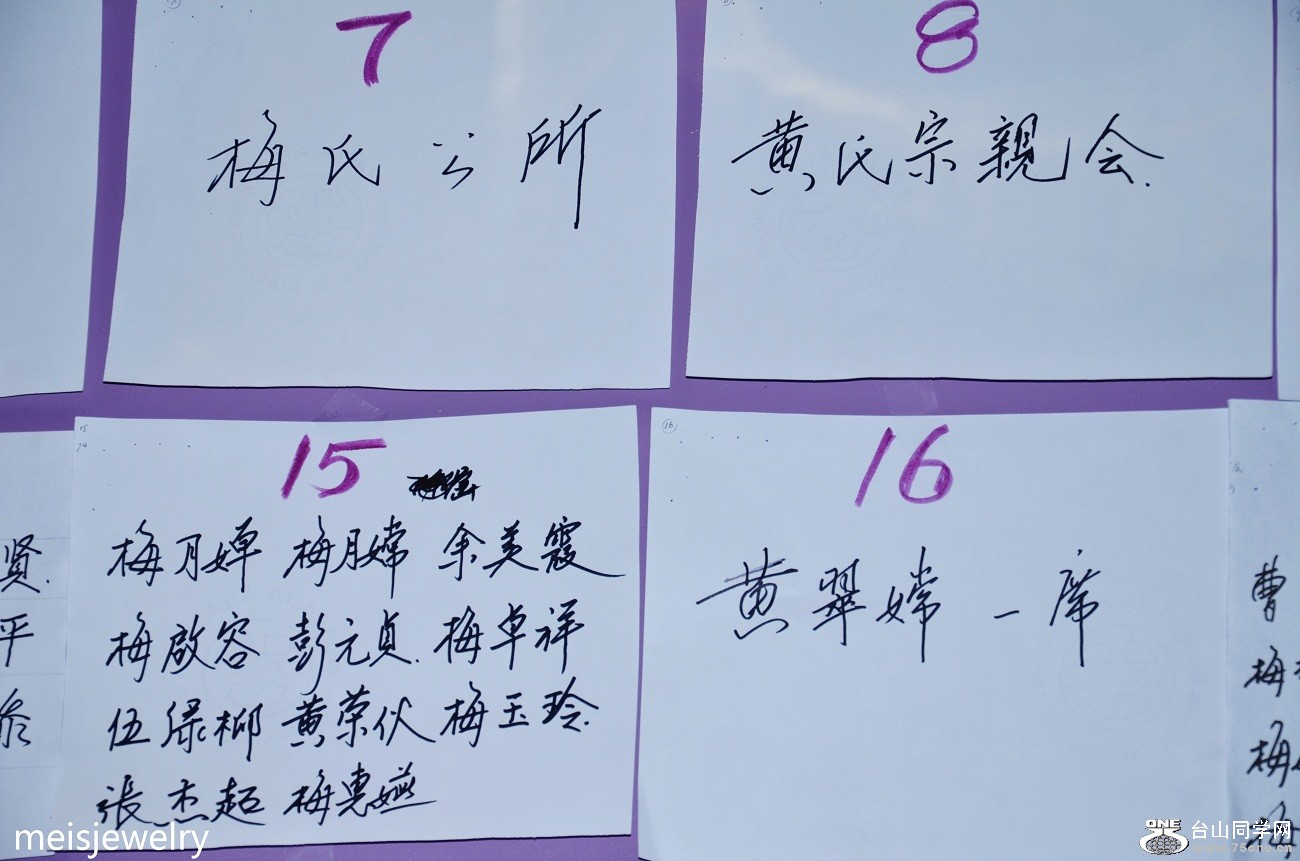 7
梅氏公所
8
黄氏宗親会.
15
梅月婵 梅月嫦 余美霞
梅啟容 彭元貞. 梅卓祥
伍绿柳 黄荣伙 梅玉玲.
張杰超 梅惠嬿
16
黄翠嫦一席
贤.
平
曹
梅
梅
梅
meisjewelry
ONE 台山同学网
www.75one.cn